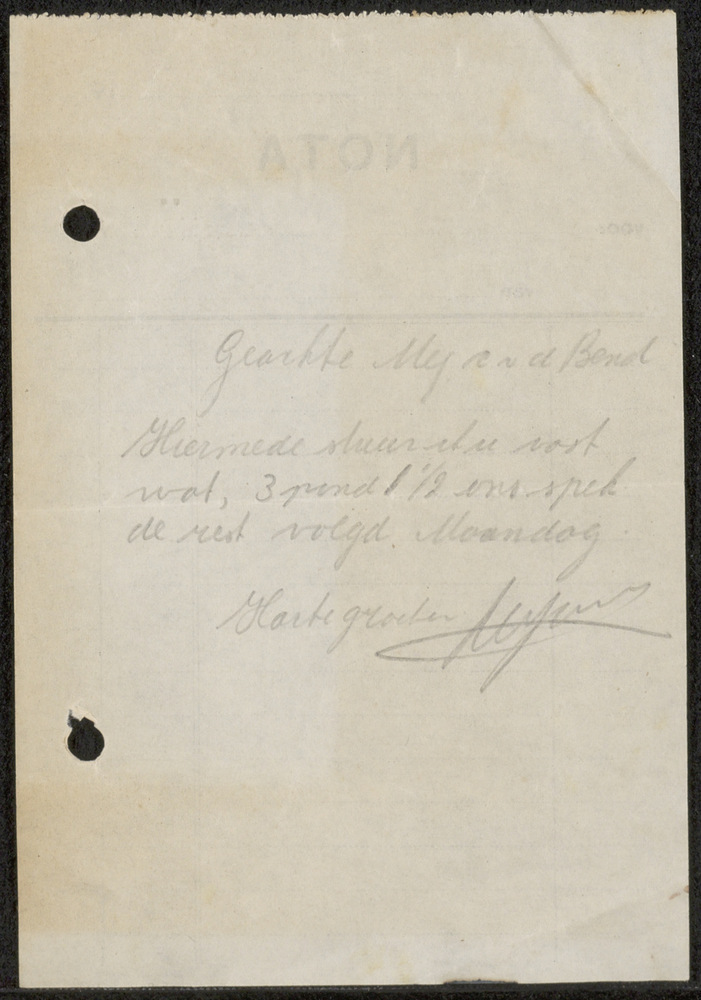 NOTA
Geachte Mej v d Bend
Hiermede stuur ik u vast
wat, 3 pond 1 1/2 ons spek
de rest volgd. Maandag
Harte groeten